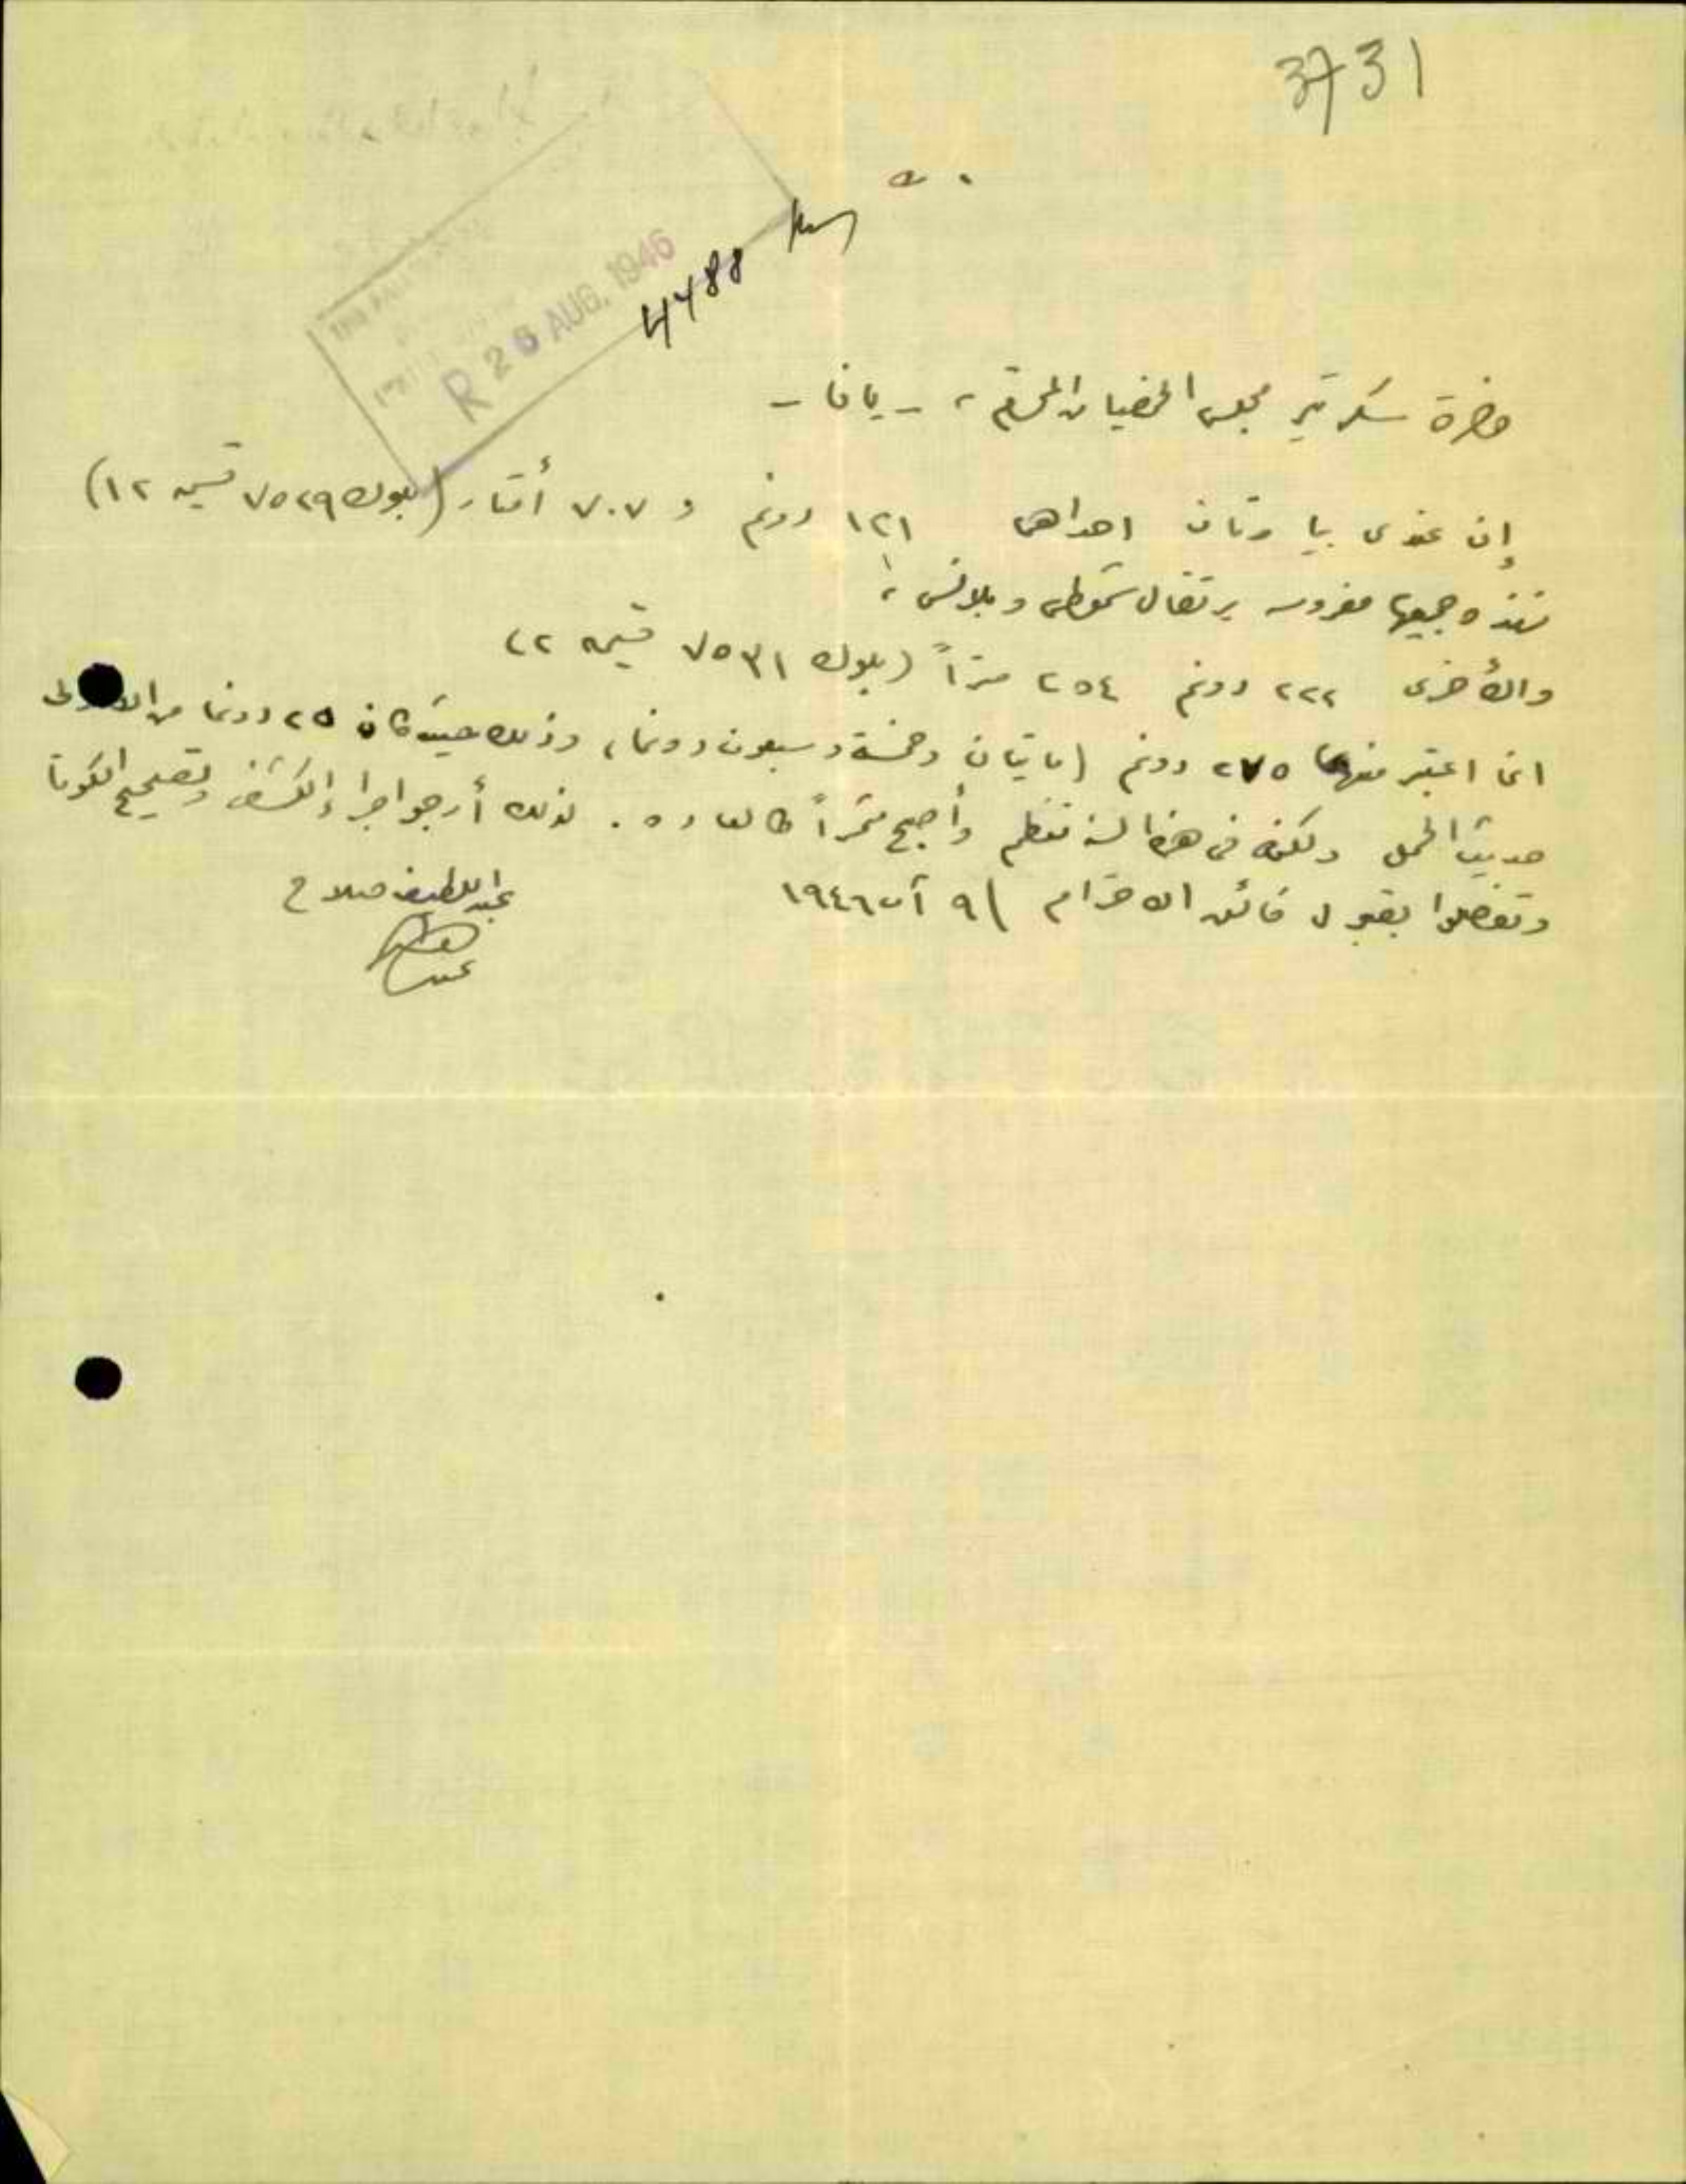 3731
4488
R 26 AUG. 1946
حضرة سكرتير مجلس الحمضيات المحترم، - يافا -
إن عندي بيارتان احداهما ١٢١ دونم و ٧٠٧ أمتار (بلوك ٧٥٢٩ قسيمه ١٢)
جميعها مغروسه برتقال شموطي وبلانس،
والأخرى ٢٢٢ دونم ٢٥٤ متراً (بلوك ٧٥٣١ قسيمه ٢)
انما اعتبر منهما ٢٧٥ دونم (مايتان وخمسة وسبعون دونما) وذلك حيث كان ٢٥ دونما من الاولى
حديث الحمل ولكنه في هذه السنه وأصبح مثمراً كالعاده. لذلك أرجو اجراء الكشف وتصحيح الكوتا
وتفضلوا بقبول فائق الاحترام ٩ آب ١٩٤٦
عبد اللطيف صلاح